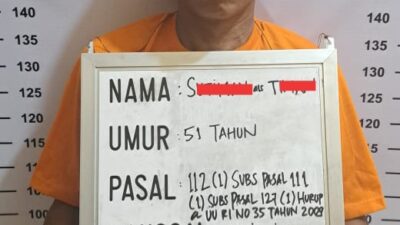 140
135
130
125
120
115
110
105
100
140
135
130
125
120
115
110
105
100
NAMA : S als T
UMUR : 51 TAHUN
PASAL : 112 (1) SUBS PASAL 111
(1) SUBS PASAL 127 (1) HURUP
a UU RI NO 35 TAHUN 2009